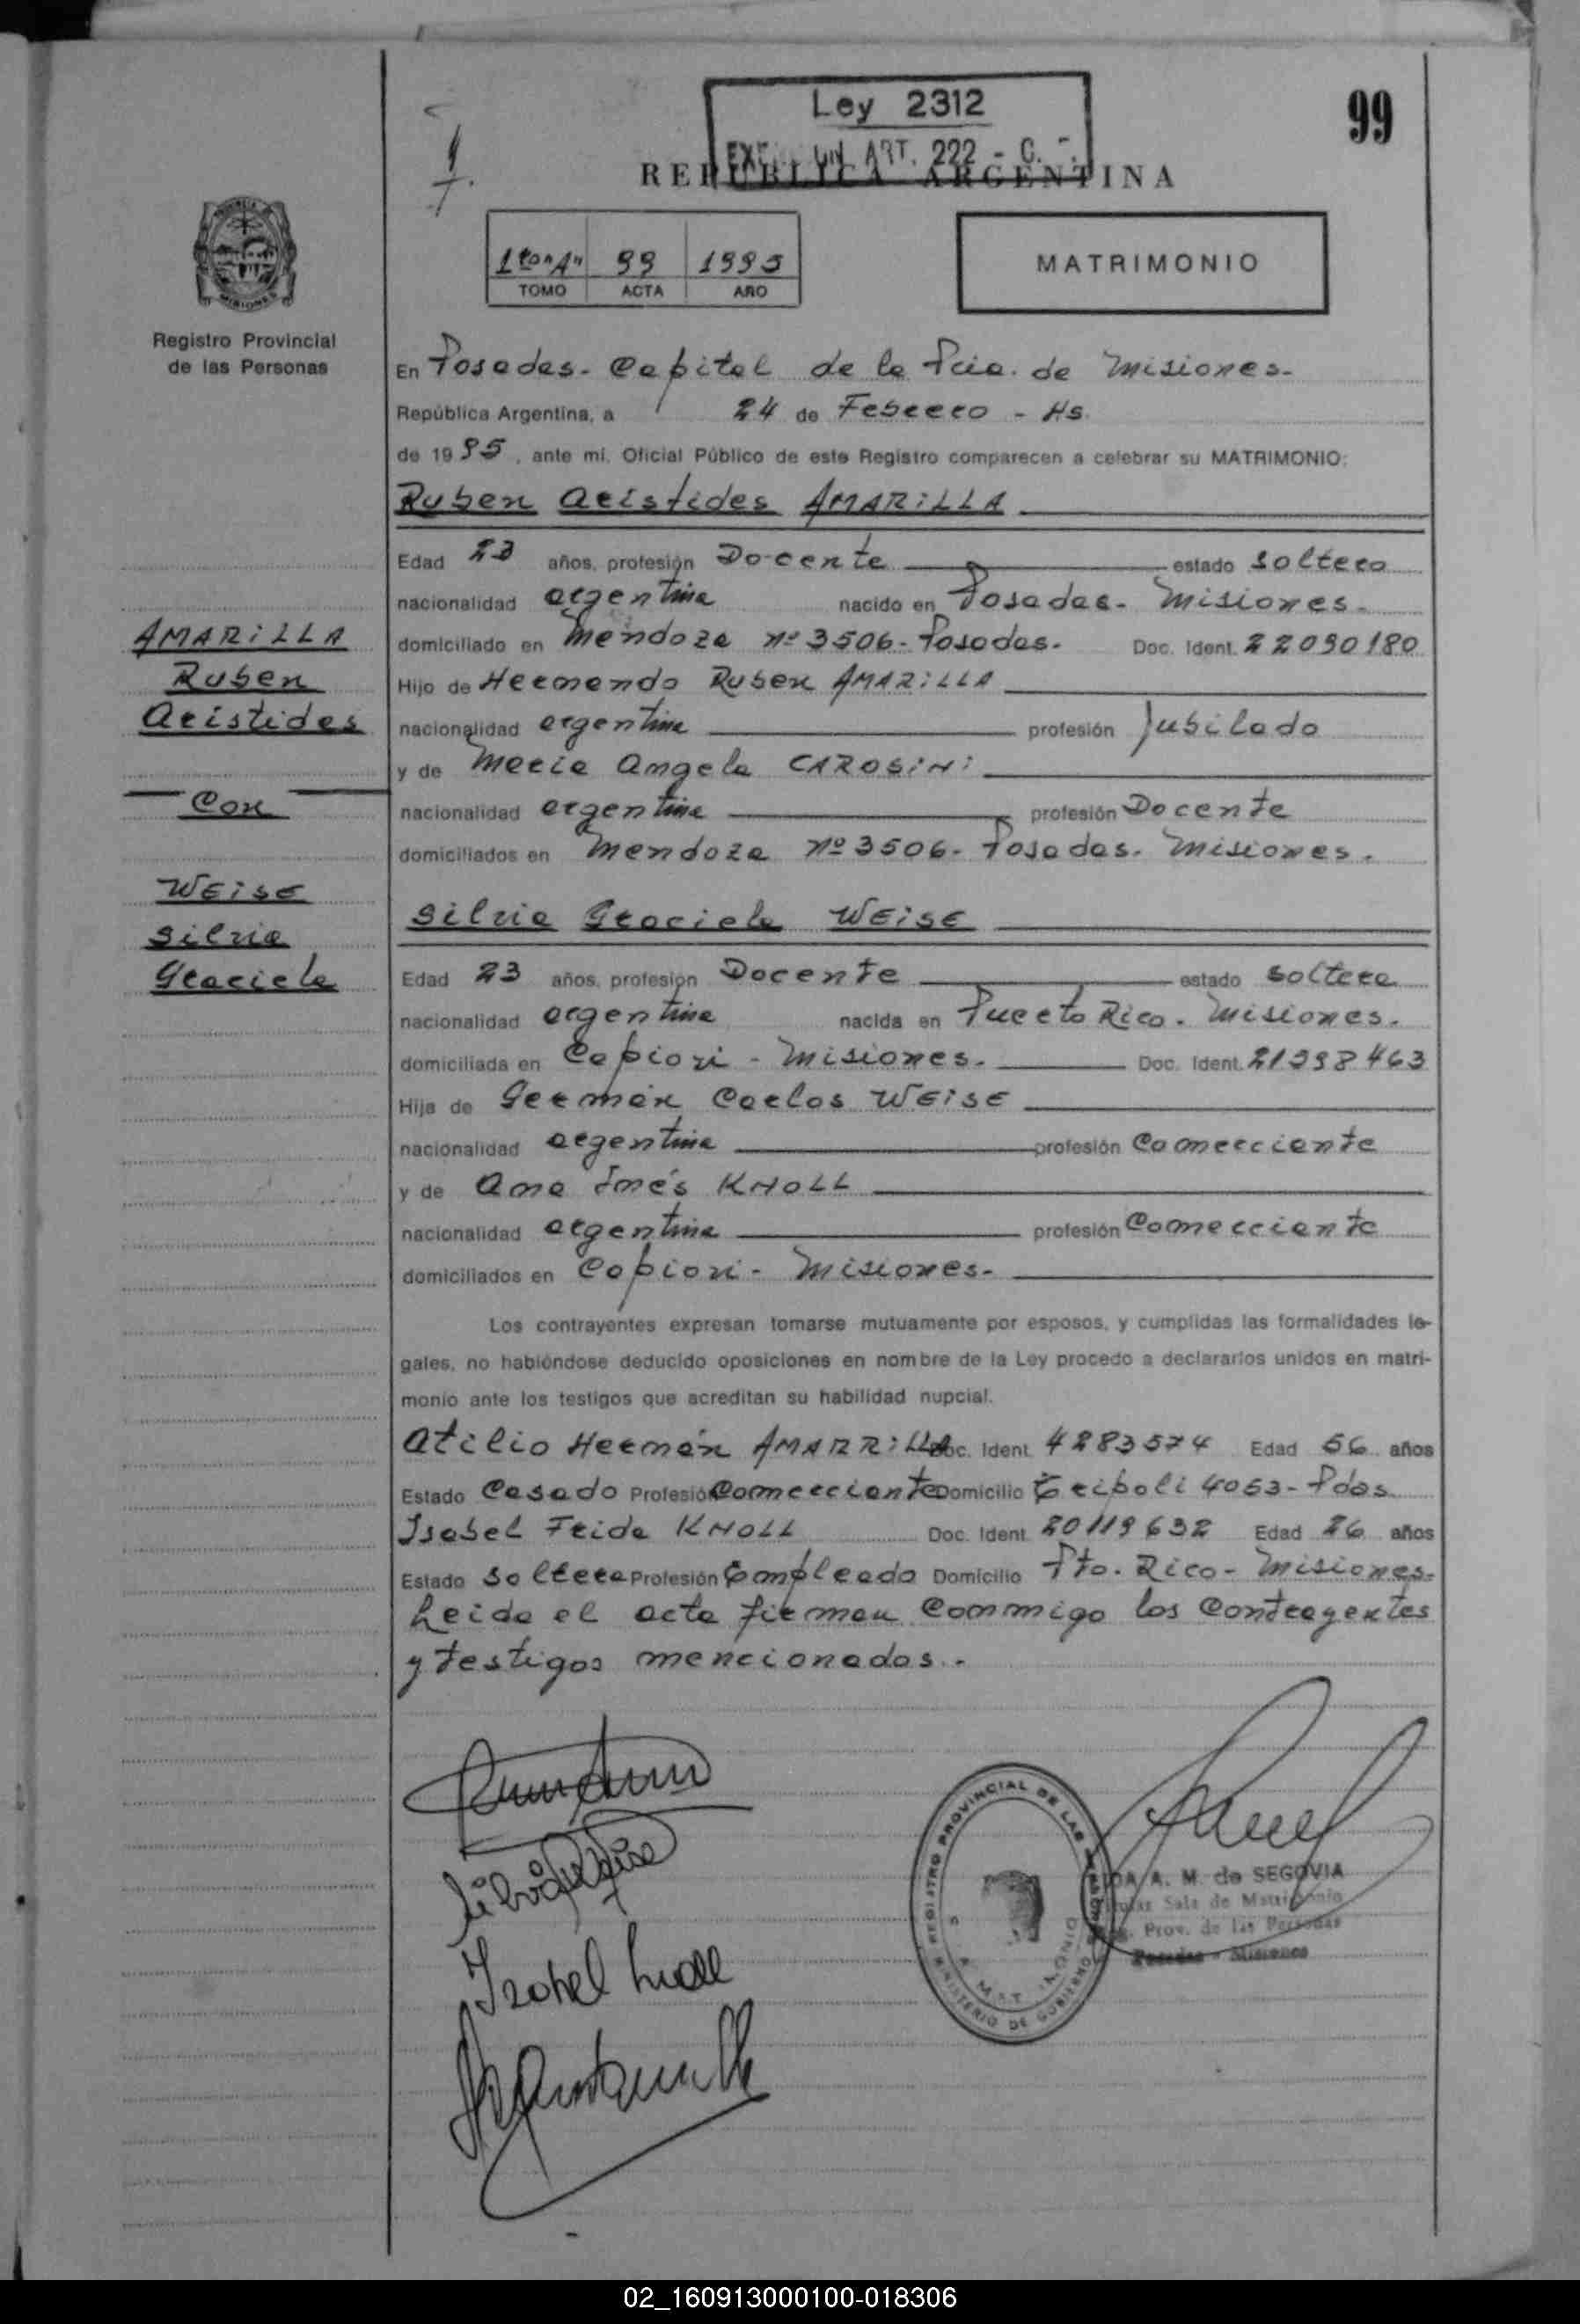 Ley 2312
ART. 222 - C.
99
REPUBLICA ARGENTINA
1to "A" 99 1995
TOMO ACTA AÑO
MATRIMONIO
PROVINCIA DE
MISIONES
Registro Provincial
de las Personas
En Posadas. Capital de la Pcia. de Misiones.
República Argentina, a 24 de Febrero - Hs.
de 1995, ante mi, Oficial Público de este Registro comparecen a celebrar su MATRIMONIO:
Ruben Aristides AMARILLA
Edad 23 años, profesión Docente estado soltero
nacionalidad argentina nacido en Posadas. Misiones.
domiciliado en Mendoza nº 3506 - Posadas. Doc. Ident. 22090180
Hijo de Hernando Ruben AMARILLA
nacionalidad argentina profesión Jubilado
y de Maria Angela CAROSINI
nacionalidad argentina profesión Docente
domiciliados en Mendoza nº 3506 - Posadas. Misiones.
AMARILLA
Ruben
Aristides
Con
WEISE
Silvia
Graciela
Silvia Graciela WEISE
Edad 23 años, profesión Docente estado soltera
nacionalidad argentina nacida en Puerto Rico. Misiones.
domiciliada en Capiovi - Misiones. Doc. Ident. 21398463
Hija de Germán Carlos WEISE
nacionalidad argentina profesión Comerciante
y de Ana Inés KNOLL
nacionalidad argentina profesión Comerciante
domiciliados en Capiovi - Misiones.
Los contrayentes expresan tomarse mutuamente por esposos, y cumplidas las formalidades le-
gales, no habiéndose deducido oposiciones en nombre de la Ley procedo a declararlos unidos en matri-
monio ante los testigos que acreditan su habilidad nupcial.
Atilio Hernán AMARRILLA Doc. Ident. 4283574 Edad 56 años
Estado Casado Profesión Comerciante Domicilio Tripoli 4053 - Pdas
Isabel Frida KNOLL Doc. Ident. 20119632 Edad 26 años
Estado soltera Profesión Empleada Domicilio Pto. Rico - Misiones.
Leida el acta firman conmmigo los contrayentes
y testigos mencionados.-
Silvia Weise
Isabel Knoll
REGISTRO PROVINCIAL DE LAS PERSONAS
MINISTERIO DE GOBIERNO
A. M. de SEGOVIA
Sala de Matrimonio
Prov. de las Personas
Posadas - Misiones
02_160913000100-018306